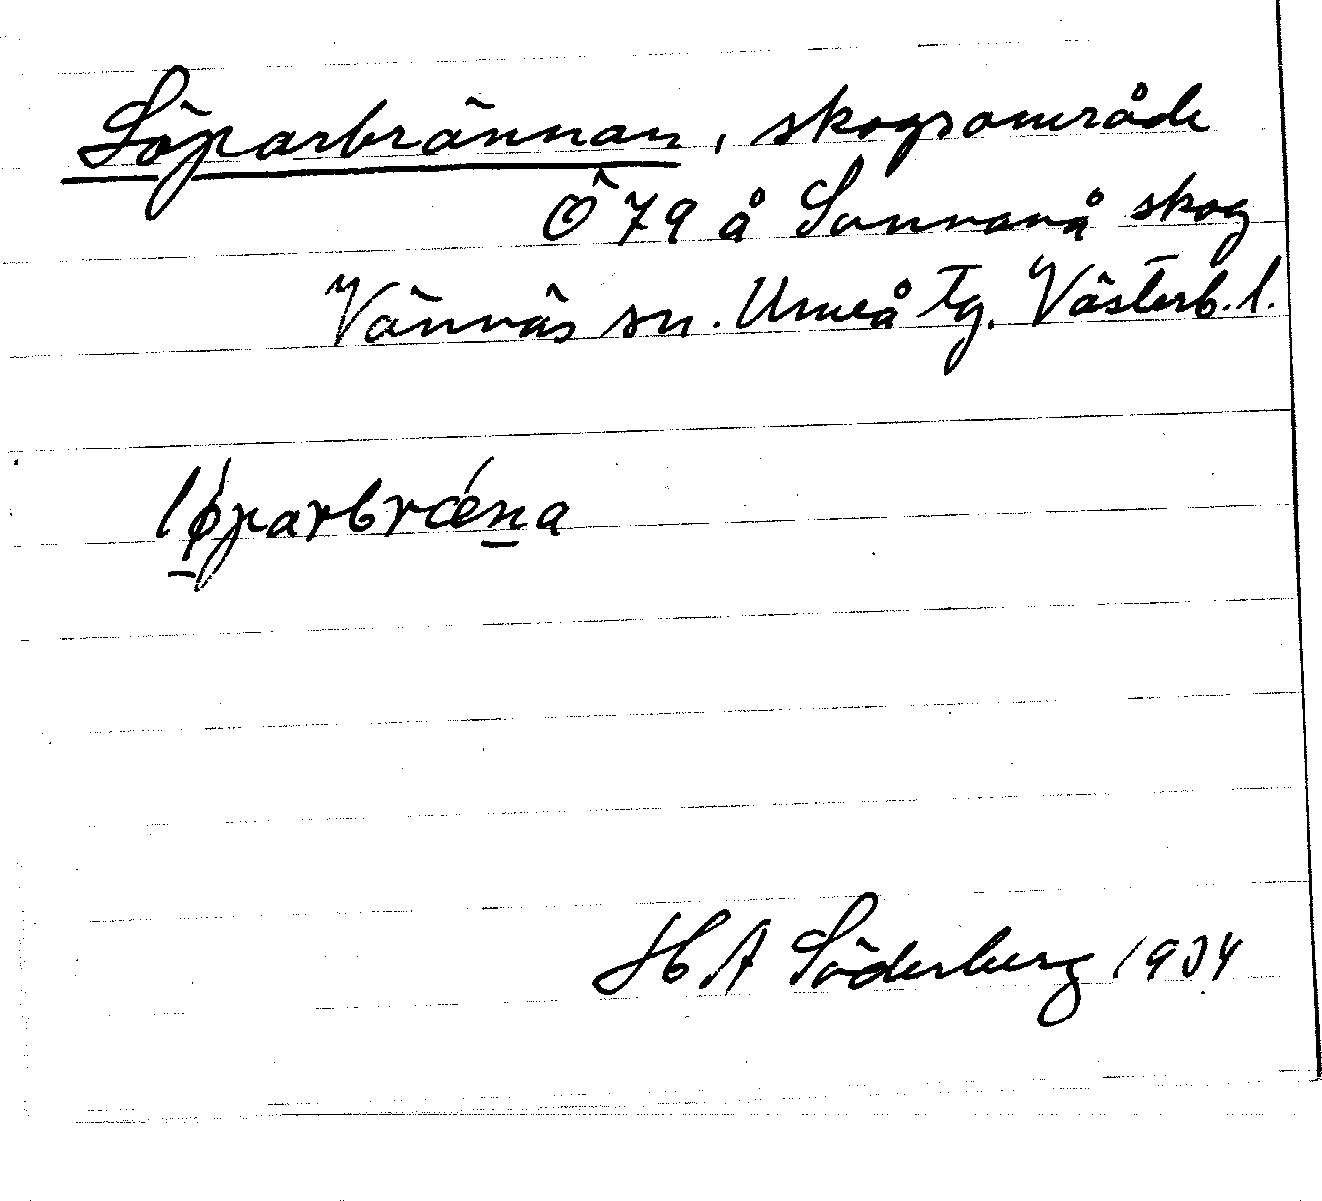 Löparbrännan, skogsområde
Ö 79 å Sunnanå skog
Vännäs sn. Umeå tg. Västerb. l.
lǿ̱parbrǽṉa
H A Söderberg 1934